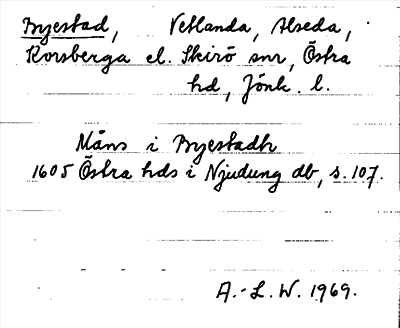 Bryestad, Vetlanda, Alseda,
Korsberga el. Skirö snr, Östra
hd, Jönk. l.
Måns i Bryestadh
1605 Östra hds i Njudung db, s. 107.
A.-L. W. 1969.